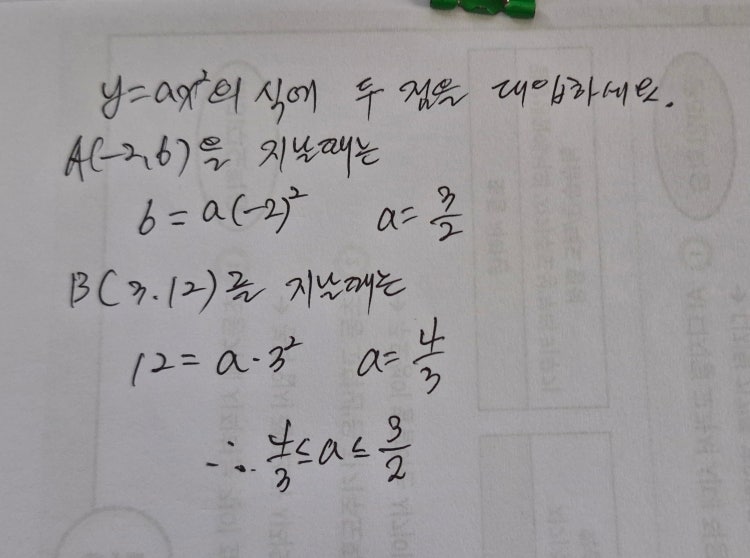 y=ax²의 식에 두 점을 대입하세요.
A(-2,6)을 지날때는
6=a(-2)² a=3/2
B(3.12)를 지날때는
12=a·3² a=4/3
∴ 4/3≤a≤3/2